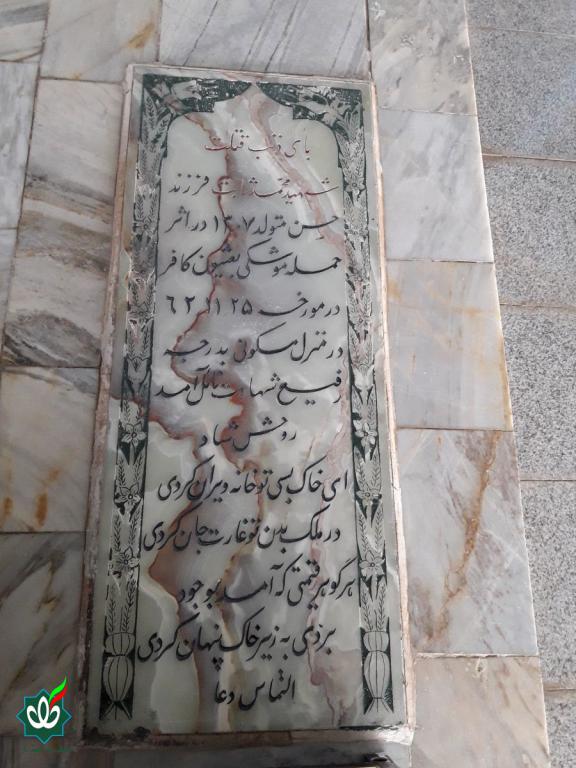 بأی ذنب قتلت
شهید محمد ذات فرزند
حسن متولد ۱۳۰۷ در اثر
حمله موشکی بعثیون کافر
در مورخه ۲۵ ۱۱ ۶۲
در منزل مسکونی بدرجه
رفیع شهادت نائل آمد
روحش شاد
ای خاک بسی تو خانه ویران کردی
در ملک بدن تو غارت جان کردی
هر گوهر قیمتی که آمد بوجود
بردی به زیر خاک پنهان کردی
التماس دعا